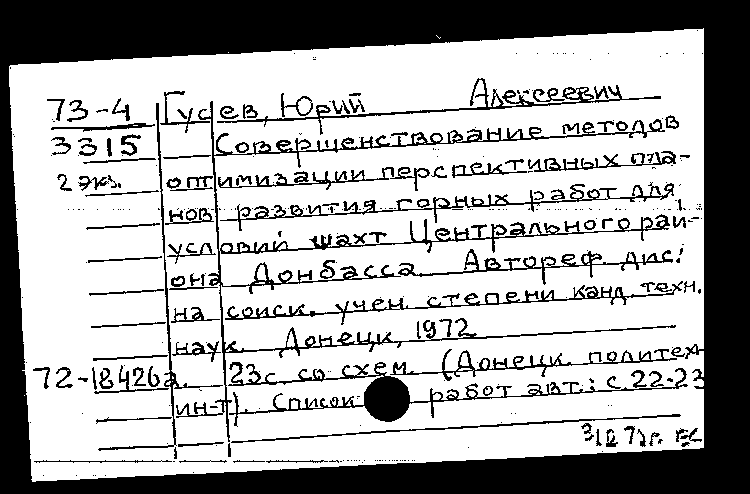 73-4 Гусев, Юрий Алексеевич
3315 Совершенствование методов
2 экз. оптимизации перспективных пла-
нов развития горных работ для
условий шахт Центрального рай-
она Донбасса. Автореф. дис.
на соиск. учен. степени канд. техн.
наук. Донецк, 1972
72-18426а. 23с. со схем. (Донецк. политех
ин-т). Список работ авт.: с. 22-23